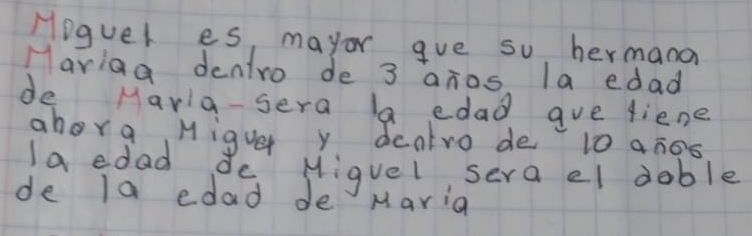 Miguel es mayor que su hermana
Mariaa dentro de 3 años la edad
de Maria-sera la edad que tiene
ahora Miguel y dentro de 10 años
la edad de Miguel sera el doble
de la edad de Maria